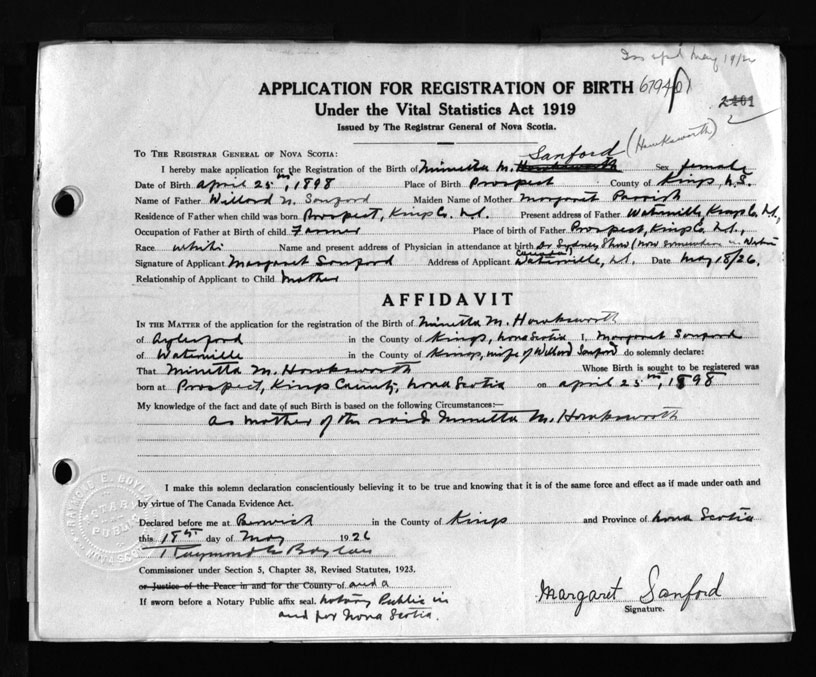 May 19/26
APPLICATION FOR REGISTRATION OF BIRTH 6794
Under the Vital Statistics Act 1919
2401
Issued by The Registrar General of Nova Scotia.
Sanford (Hawksworth)
TO THE REGISTRAR GENERAL OF NOVA SCOTIA:
I hereby make application for the Registration of the Birth of Minetta M. Hawksworth Sex female
Date of Birth April 25th, 1898 Place of Birth Prospect County of Kings N.S.
Name of Father Willard N. Sanford Maiden Name of Mother Margaret Parrish
Residence of Father when child was born Prospect, Kings Co. N.S. Present address of Father Waterville, Kings Co. N.S.
Occupation of Father at Birth of child Farmer Place of birth of Father Prospect, Kings Co. N.S.,
Race white Name and present address of Physician in attendance at birth Dr Sydney Shaw (now somewhere in Western
Canada)
Signature of Applicant Margaret Sanford Address of Applicant Waterville, N.S. Date May 18/26.
Relationship of Applicant to Child Mother
AFFIDAVIT
IN THE MATTER of the application for the registration of the Birth of Minetta M. Hawksworth
of Aylesford in the County of Kings, Nova Scotia I, Margaret Sanford
of Waterville in the County of Kings, wife of Willard Sanford do solemnly declare:
That Minetta M. Hawksworth Whose Birth is sought to be registered was
born at Prospect, Kings County, Nova Scotia on April 25th, 1898
My knowledge of the fact and date of such Birth is based on the following Circumstances:—
As mother of the said Minetta M. Hawksworth
I make this solemn declaration conscientiously believing it to be true and knowing that it is of the same force and effect as if made under oath and
by virtue of The Canada Evidence Act.
Declared before me at Berwick in the County of Kings and Province of Nova Scotia
this 18th day of May 1926
Raymond E Boylan
Commissioner under Section 5, Chapter 38, Revised Statutes, 1923.
or Justice of the Peace in and for the County of and a
If sworn before a Notary Public affix seal. Notary Public in
and for Nova Scotia.
Margaret Sanford
Signature.
RAYMOND E. BOYLAN
NOTARY
PUBLIC
NOVA SCOTIA